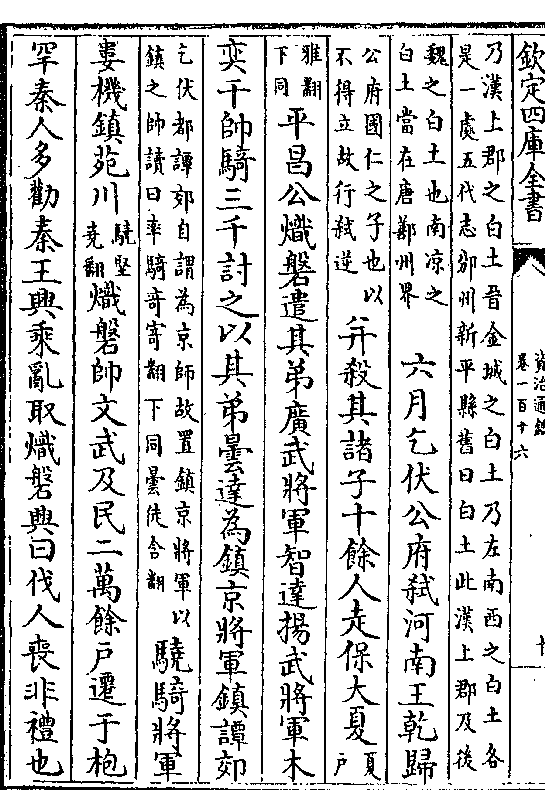 欽定四庫全書
資治通鑑
卷一百十六
十
乃漢上郡之白土晉金城之白土乃左南西之白土各
是一處五代志邠州新平縣舊曰白土此漢上郡及後
魏之白土也南凉之
白土當在唐鄭州界
六月乞伏公府弑河南王乾歸
公府國仁之子也以
不得立故行弑逆
并殺其諸子十餘人走保大夏
夏
户
雅翻
下同
平昌公熾磐遣其弟廣武將軍智達揚武將軍木
奕干帥騎三千討之以其弟曇達為鎮京將軍鎮譚郊
乞伏都譚郊自謂為京師故置鎮京將軍以
鎮之帥讀曰率騎奇寄翻下同曇徒含翻
驍騎將軍
婁機鎮苑川
驍堅
堯翻
熾磐帥文武及民二萬餘户遷于枹
罕秦人多勸秦王興乘亂取熾磐興曰伐人喪非禮也